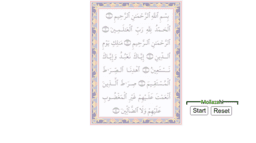 بِسْمِ ٱللَّهِ ٱلرَّحْمَٰنِ ٱلرَّحِيمِ ۝
ٱلْحَمْدُ لِلَّهِ رَبِّ ٱلْعَٰلَمِينَ ۝
ٱلرَّحْمَٰنِ ٱلرَّحِيمِ ۝ مَٰلِكِ يَوْمِ
ٱلدِّينِ ۝ إِيَّاكَ نَعْبُدُ وَإِيَّاكَ
نَسْتَعِينُ ۝ ٱهْدِنَا ٱلصِّرَٰطَ
ٱلْمُسْتَقِيمَ ۝ صِرَٰطَ ٱلَّذِينَ
أَنْعَمْتَ عَلَيْهِمْ غَيْرِ ٱلْمَغْضُوبِ
عَلَيْهِمْ وَلَا ٱلضَّآلِّينَ ۝
Start Reset